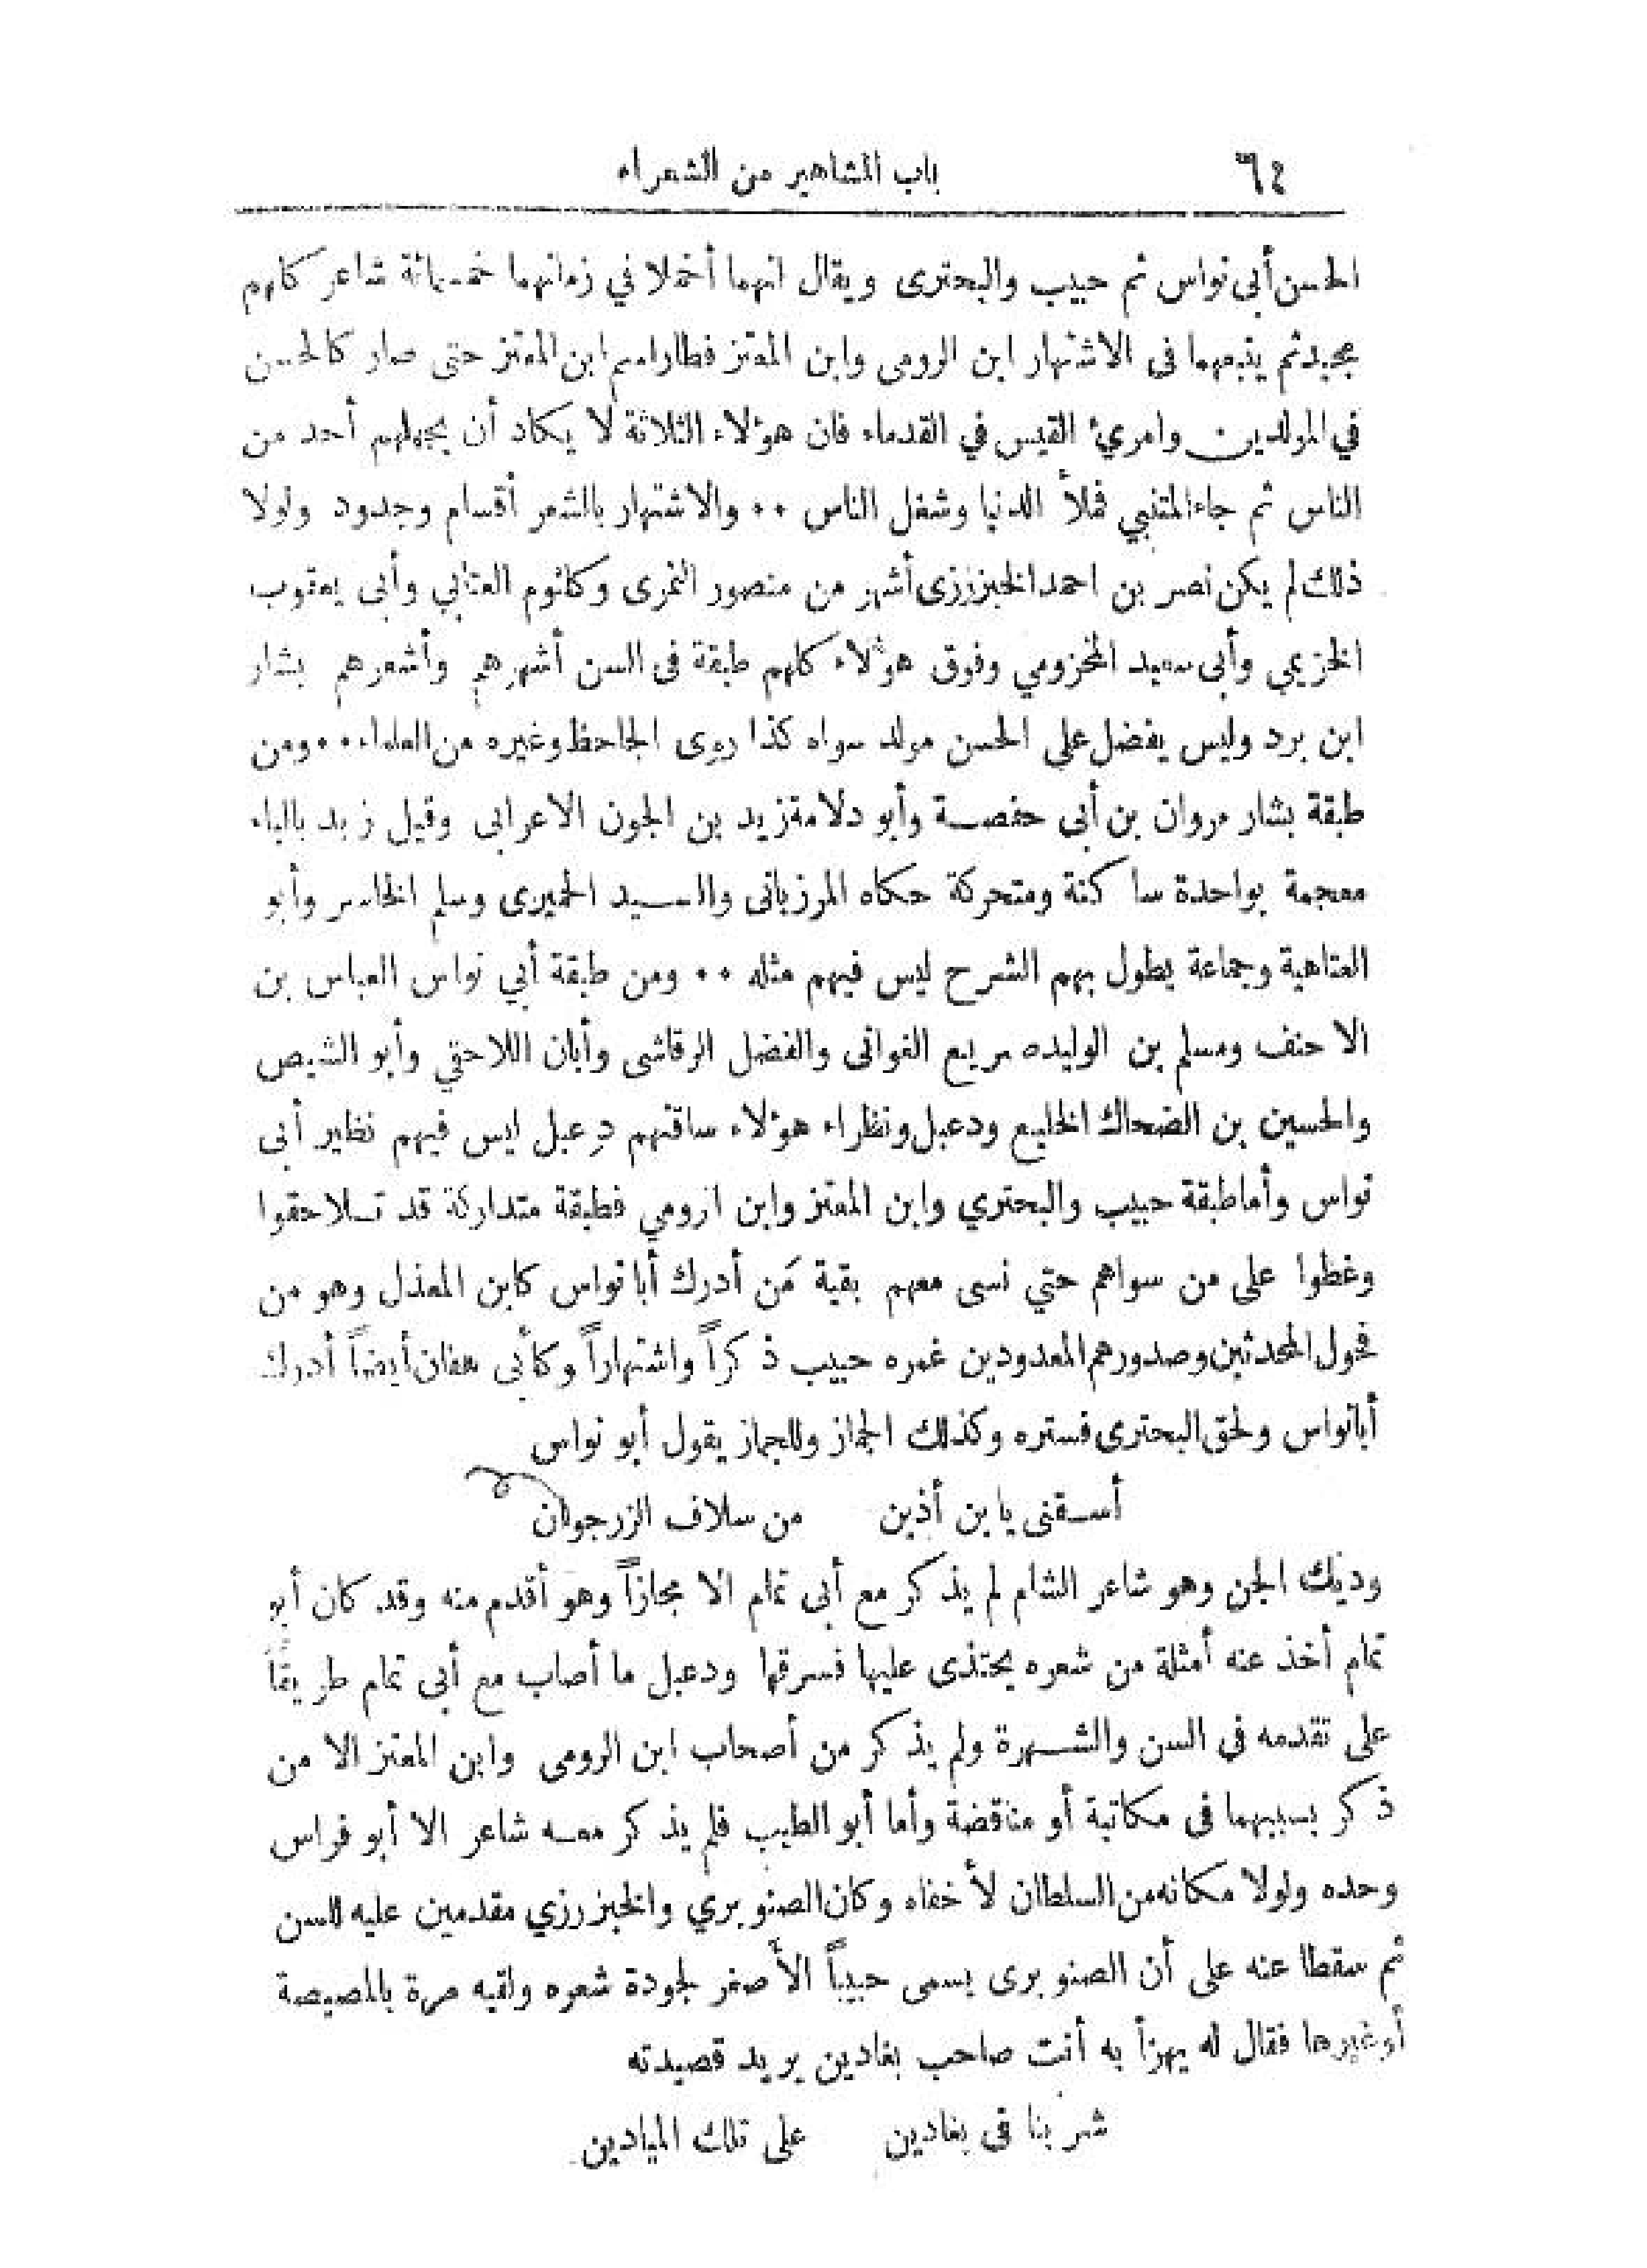 ٦٤ باب المشاهير من الشعراء
الحسن أبى نواس ثم حبيب والبحترى ويقال انهما أخملا في زمانهما خمسمائة شاعر كلهم
مجيد ثم يتبعهما فى الاشتهار ابن الرومى وابن المعتز فطار اسم ابن المعتز حتى صار كالحسن
في المولدين وامرئ القيس في القدماء فان هؤلاء الثلاثة لا يكاد أن يجهلهم أحد من
الناس ثم جاء المتنبي فملأ الدنيا وشغل الناس ٠٠ والاشتهار بالشعر أقسام وجدود ولولا
ذلك لم يكن نصر بن احمد الخبزرزى أشهر من منصور النمرى وكلثوم العتابي وأبى يعقوب
الخزيمي وأبى سعيد المخزومي وفوق هؤلاء كلهم طبقة فى السن أشهرهم وأشعرهم بشار
ابن برد وليس يفضل على الحسن مولد سواه كذا روى الجاحظ وغيره من العلماء ٠٠ ومن
طبقة بشار مروان بن أبى حفصة وأبو دلامة زيد بن الجون الاعرابى وقيل زبد بالباء
معجمة بواحدة ساكنة ومتحركة حكاه المرزبانى والسيد الحميرى وسلم الخاسر وأبو
العتاهية وجماعة يطول بهم الشرح ليس فيهم مثله ٠٠ ومن طبقة أبي نواس العباس بن
الاحنف ومسلم بن الوليد صريع الغوانى والفضل الرقاشى وأبان اللاحقي وأبو الشيص
والحسين بن الضحاك الخليع ودعبل ونظراء هؤلاء ساقتهم دِعبل ليس فيهم نظير أبى
نواس وأما طبقة حبيب والبحتري وابن المعتز وابن الرومي فطبقة متداركة قد تلاحقوا
وغطوا على من سواهم حتي نسى معهم بقية مَن أدرك أبا نواس كابن المعذل وهو من
فحول المحدثين وصدورهم المعدودين غمره حبيب ذكراً واشتهاراً وكأبي هفان أيضاً أدرك
أبا نواس ولحق البحترى فستره وكذلك الجماز وللجماز يقول أبو نواس
أسقنى يا بن أذين من سلاف الزرجوان
وديك الجن وهو شاعر الشام لم يذكر مع أبى تمام الا مجازاً وهو أقدم منه وقد كان أبو
تمام أخذ عنه أمثلة من شعره يحتذى عليها فسرقها ودعبل ما أصاب مع أبى تمام طريقاً
على تقدمه فى السن والشهرة ولم يذكر من أصحاب ابن الرومى وابن المعتز الا من
ذكر بسببهما فى مكاتبة أو مناقضة وأما أبو الطيب فلم يذكر معه شاعر الا أبو فراس
وحده ولولا مكانه من السلطان لأخفاه وكان الصنوبري والخبزرزي مقدمين عليه للسن
ثم سقطا عنه على أن الصنوبرى يسمى حبيباً الأصغر لجودة شعره ولقيه مرة بالمصيصة
أو غيرها فقال له يهزأ به أنت صاحب بغادين يريد قصيدته
شربنا فى بغادين على تلك الميادين